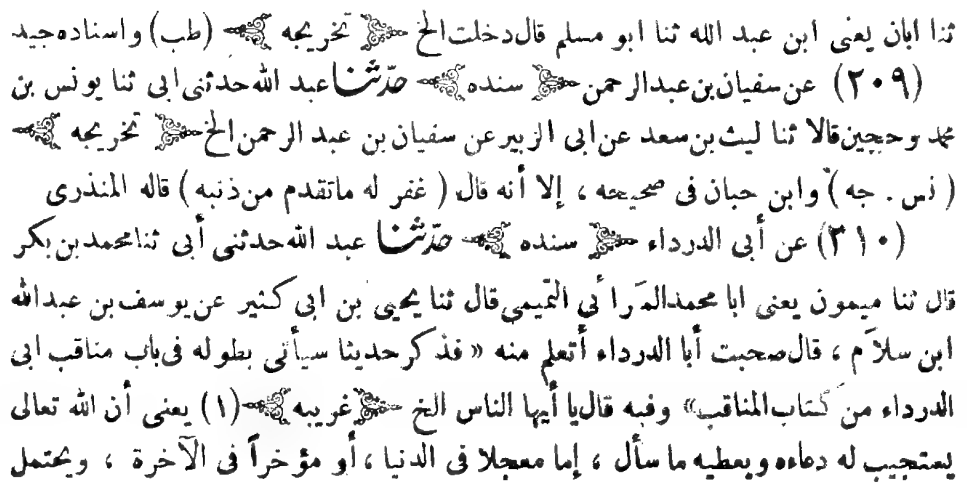 ثنا ابان يعنى ابن عبد الله ثنا ابو مسلم قال دخلت الخ ﴿ تخريجه ﴾ (طب) واسناده جيد
(٢٠٩) عن سفيان بن عبد الرحمن ﴿ سنده ﴾ حدّثنا عبد الله حدثنى ابى ثنا يونس بن
محمد وحجين قالا ثنا ليث بن سعد عن ابى الزبير عن سفيان بن عبد الرحمن الخ ﴿ تخريجه ﴾
( نس . جه ) وابن حبان فى صحيحه ، إلا أنه قال ( غفر له ماتقدم من ذنبه ) قاله المنذرى
(٣١٠) عن أبى الدرداء ﴿ سنده ﴾ حدّثنا عبد الله حدثنى أبى ثنا محمد بن بكر
قال ثنا ميمون يعنى ابا محمد المَرائى التميمى قال ثنا يحيى بن ابى كثير عن يوسف بن عبد الله
ابن سلاَم ، قال صحبت أبا الدرداء أتعلم منه « فذكر حديثا سيأتى بطوله فى باب مناقب ابى
الدرداء من كتاب المناقب» وفيه قال يا أيها الناس الخ ﴿ غريبه ﴾ (١) يعنى أن الله تعالى
يستجيب له دعاءه ويعطيه ما سأل ، إما معجلا فى الدنيا ، أو مؤخراً فى الآخرة ، ويحتمل